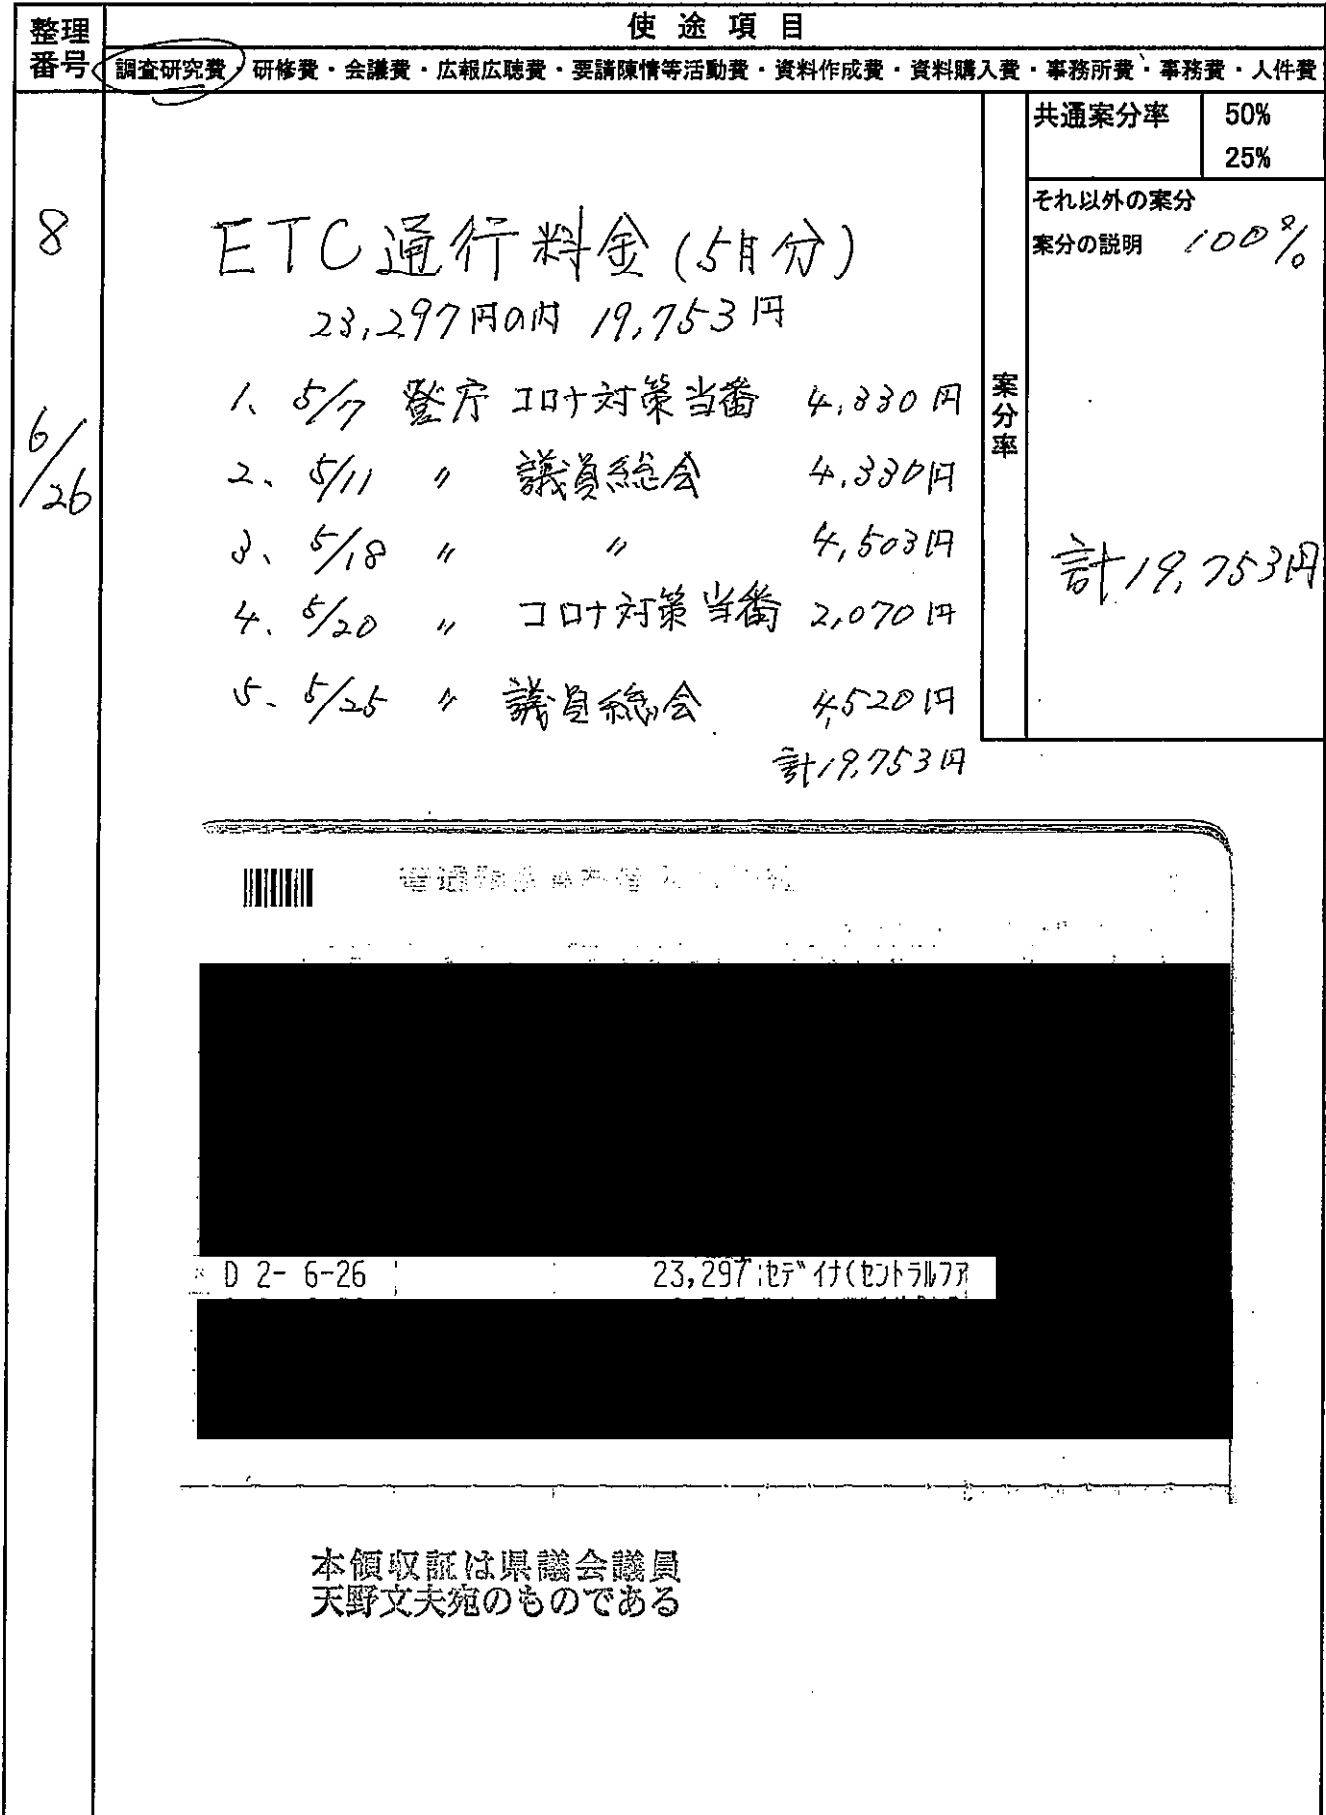 整理番号
使途項目
調査研究費 研修費・会議費・広報広聴費・要請陳情等活動費・資料作成費・資料購入費・事務所費・事務費・人件費
8
6/26
ETC通行料金(5月分)
23,297円の内 19,753円
1、5/7 登庁 コロナ対策当番 4,330円
2、5/11 〃 議員総会 4,330円
3、5/18 〃 〃 4,503円
4、5/20 〃 コロナ対策当番 2,070円
5、5/25 〃 議員総会 4,520円
計19,753円
案分率
共通案分率 50%
25%
それ以外の案分
案分の説明 100%
計19,753円
D 2- 6-26 23,297 セデイナ(セントラルファ
本領収証は県議会議員
天野文夫宛のものである